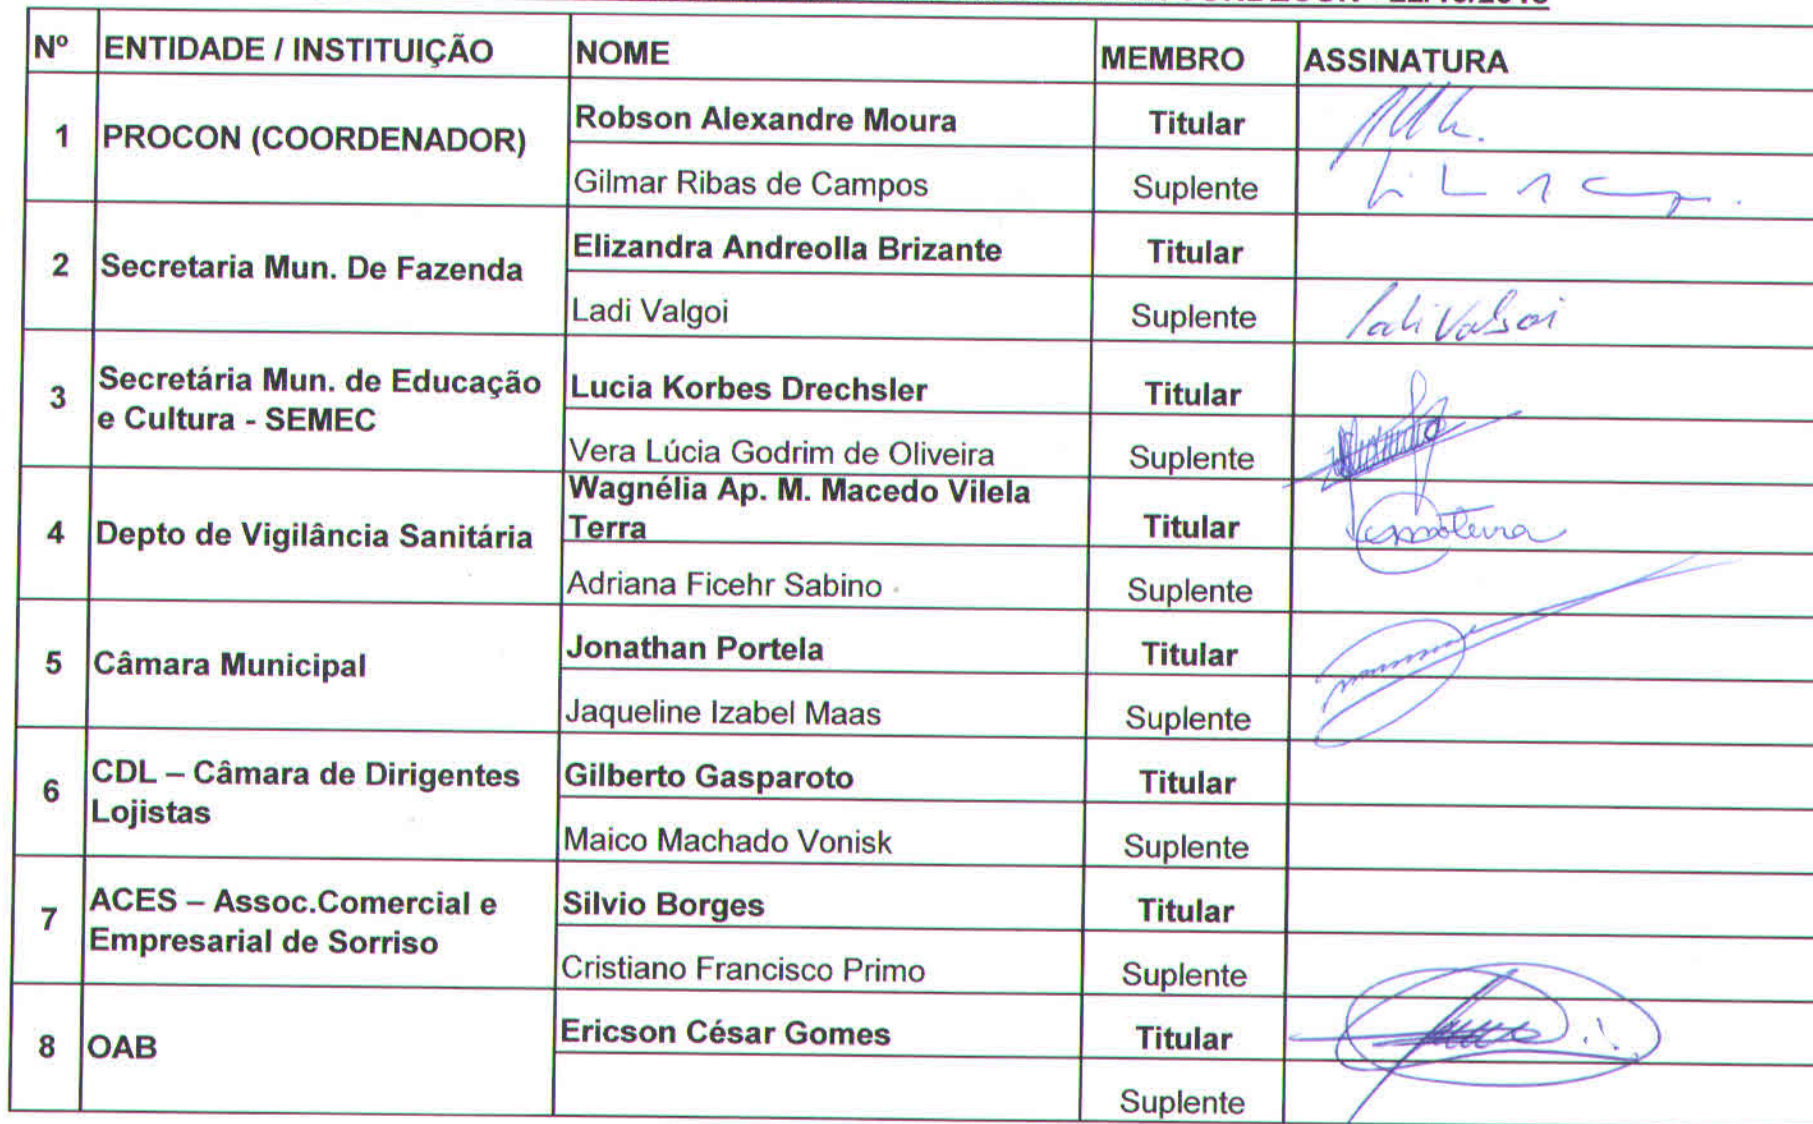 Nº ENTIDADE / INSTITUIÇÃO NOME MEMBRO ASSINATURA
1 PROCON (COORDENADOR) Robson Alexandre Moura Titular
Gilmar Ribas de Campos Suplente
2 Secretaria Mun. De Fazenda Elizandra Andreolla Brizante Titular
Ladi Valgoi Suplente Ladi Valgoi
3 Secretária Mun. de Educação
e Cultura - SEMEC
Lucia Korbes Drechsler Titular
Vera Lúcia Godrim de Oliveira Suplente
4 Depto de Vigilância Sanitária
Wagnélia Ap. M. Macedo Vilela
Terra Titular
Adriana Ficehr Sabino Suplente
5 Câmara Municipal Jonathan Portela Titular
Jaqueline Izabel Maas Suplente
6 CDL – Câmara de Dirigentes
Lojistas
Gilberto Gasparoto Titular
Maico Machado Vonisk Suplente
7 ACES – Assoc.Comercial e
Empresarial de Sorriso
Silvio Borges Titular
Cristiano Francisco Primo Suplente
8 OAB Ericson César Gomes Titular
Suplente